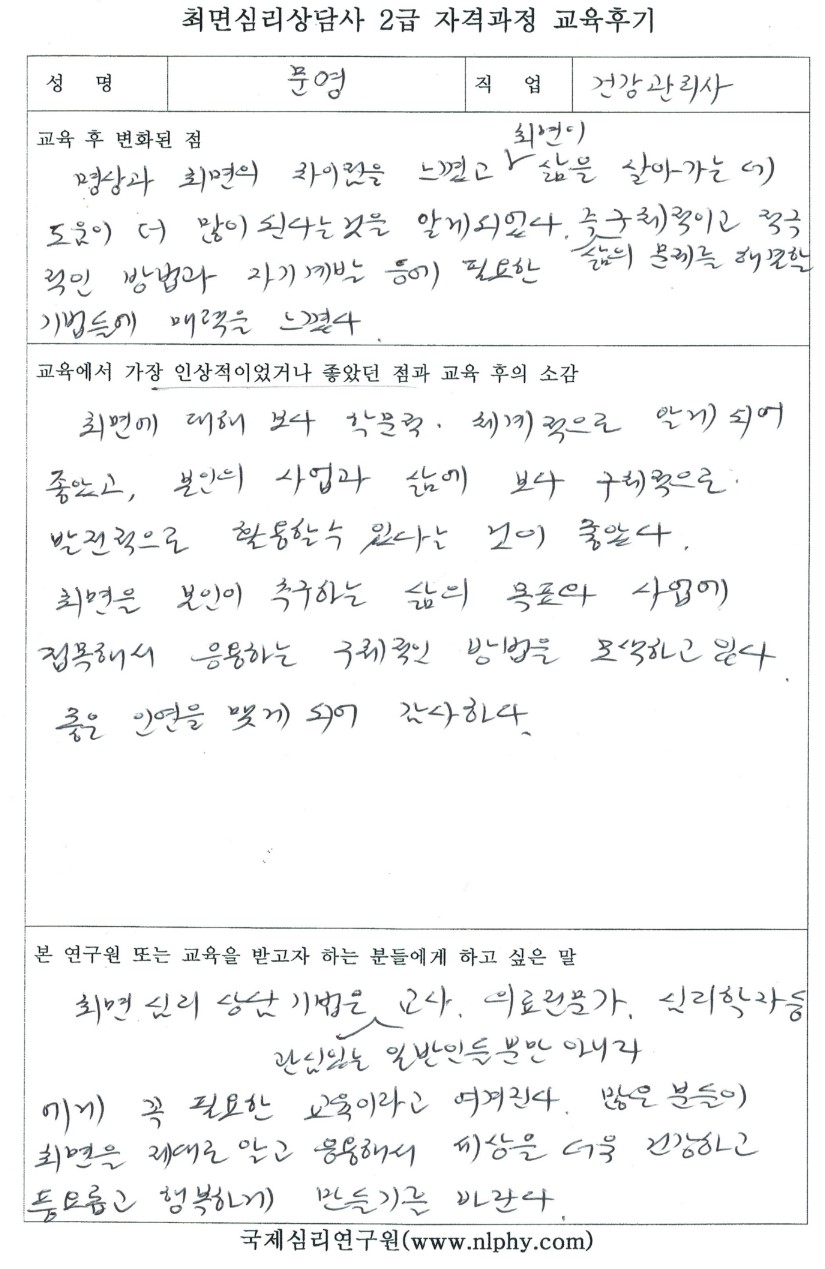 최면심리상담사 2급 자격과정 교육후기
성 명 문영 직 업 건강관리사
교육 후 변화된 점
최면이
명상과 최면의 차이점을 느꼈고 삶을 살아가는 데
도움이 더 많이 된다는것을 알게되었다. 즉 구체적이고 적극
적인 방법과 자기계발 등에 필요한 삶의 문제를 해결할
기법들에 매력을 느꼈다
교육에서 가장 인상적이었거나 좋았던 점과 교육 후의 소감
최면에 대해 보다 학문적. 체계적으로 알게 되어
좋았고, 본인의 사업과 삶에 보다 구체적으로.
발전적으로 활용할수 있다는 것이 좋았다.
최면을 본인이 추구하는 삶의 목표와 사업에
접목해서 응용하는 구체적인 방법을 모색하고 있다.
좋은 인연을 맺게 되어 감사하다.
본 연구원 또는 교육을 받고자 하는 분들에게 하고 싶은 말
최면 심리 상담 기법은 교사. 의료전문가. 심리학자들
관심있는 일반인들 뿐만 아니라
에게 꼭 필요한 교육이라고 여겨진다. 많은 분들이
최면을 제대로 알고 응용해서 세상을 더욱 건강하고
풍요롭고 행복하게 만들기를 바란다.
국제심리연구원(www.nlphy.com)